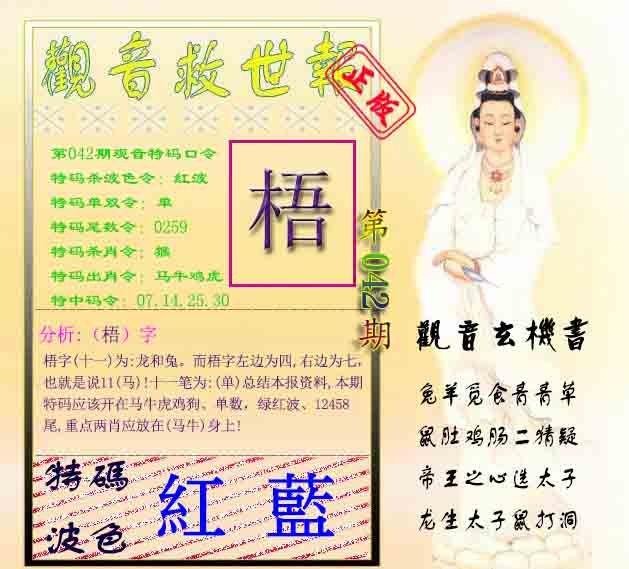 觀音救世報
正传
第042期观音特码口令
特码杀波色令：紅波
特码单双令：单
特码尾数令：0259
特码杀肖令：猴
特码出肖令：马牛鸡虎
特中码令：07.14.25.30
梧
第042期
分析：（梧）字
梧字(十一)为:龙和兔。而梧字左边为四,右边为七,
也就是说11(马)!十一笔为:(单)总结本报资料,本期
特码应该开在马牛虎鸡狗、单数，绿红波、12458
尾,重点两肖应放在(马牛)身上!
特碼
波色
紅 藍
觀音玄機書
兔羊觅食青青草
鼠肚鸡肠二猜疑
帝王之心选太子
龙生太子鼠打洞